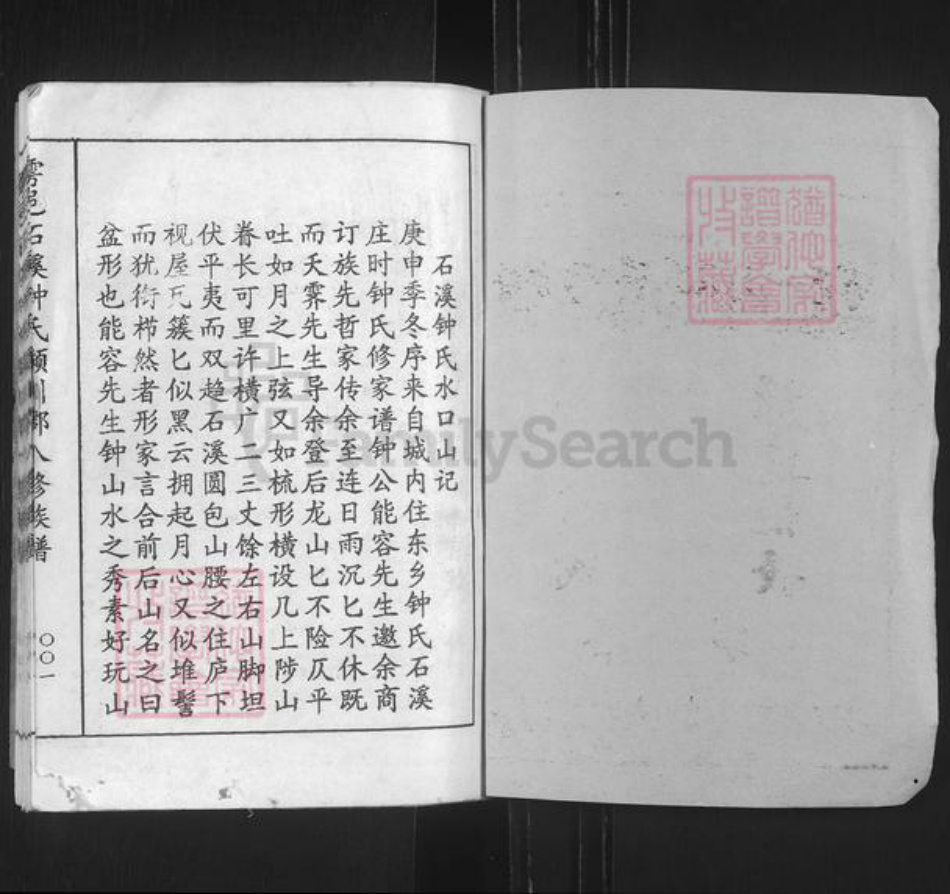 石溪钟氏水口山记
庚申季冬序来自城内住东乡钟氏石溪
庄时钟氏修家谱钟公能容先生邀余商
订族先哲家传余至连日雨沉匕不休既
而天霁先生导余登后龙山匕不险仄平
吐如月之上弦又如梳形横设几上陟山
脊长可里许横广二三丈馀左右山脚坦
伏平夷而双趋石溪圆包山腰之住庐下
视屋瓦簇匕似黑云拥起月心又似堆髻
而犹衔栉然者形家言合前后山名之曰
盆形也能容先生钟山水之秀素好玩山
石溪钟氏颍川郡八修族谱
〇〇一
FamilySearch